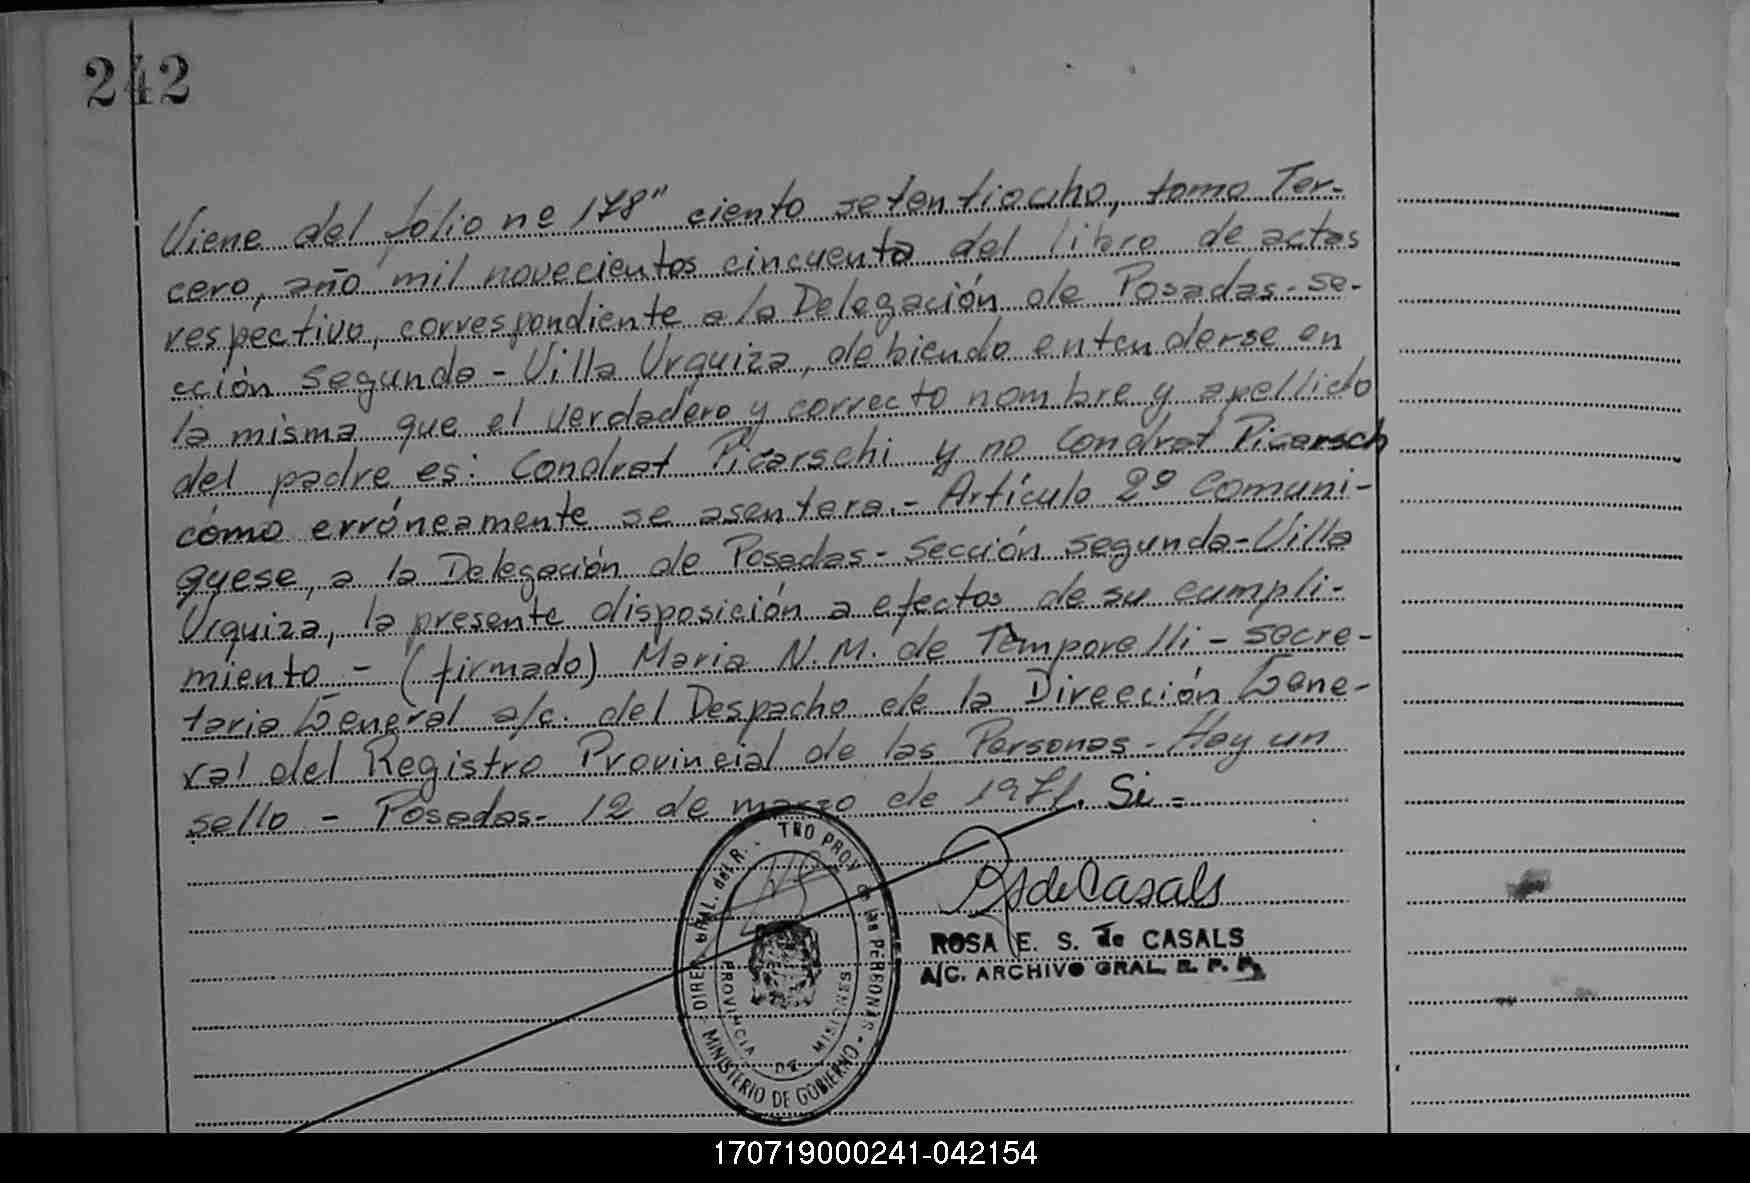 242
Viene del folio nº 178" ciento setentiocho, tomo Ter-
cero, año mil novecientos cincuenta del libro de actas
respectivo, correspondiente a la Delegación de Posadas- se-
cción segunda - Villa Urquiza, debiendo entenderse en
la misma que el verdadero y correcto nombre y apellido
del padre es: Condrat Picarschi y no Condrat Picarsch
cómo erróneamente se asentara.- Artículo 2º Comuni-
quese, a la Delegación de Posadas- sección segunda- Villa
Urquiza, la presente disposición a efectos de su cumpli-
miento - (firmado) Maria N. M. de Temporelli - secre-
taria General a/c. del Despacho de la Dirección Gene-
ral del Registro Provincial de las Personas - Hay un
sello - Posadas- 12 de marzo de 1971. Si =
RS de Casals
ROSA E. S. de CASALS
A/C. ARCHIVO GRAL. R. P. P.
DIREC GRAL. del R. - TRO PROV. de las PERSONAS -
MINISTERIO DE GOBIERNO -
PROVINCIA DE MISIONES
170719000241-042154